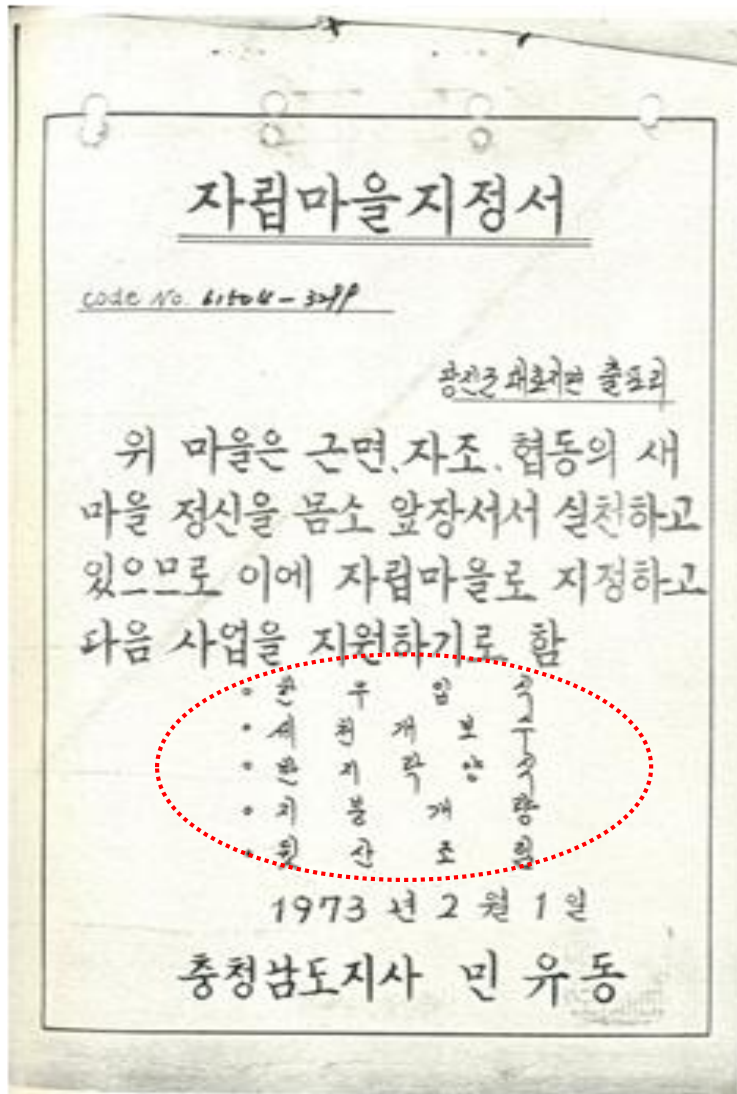 자립마을지정서
code No. 61504-3299
당진군 대호지면 출포리
위 마을은 근면.자조.협동의 새
마을 정신을 몸소 앞장서서 실천하고
있으므로 이에 자립마을로 지정하고
다음 사업을 지원하기로 함
• 한우입식
• 세천개보수
• 반지락양식
• 지붕개량
• 뒷산조림
1973년 2월 1일
충청남도지사 민유동